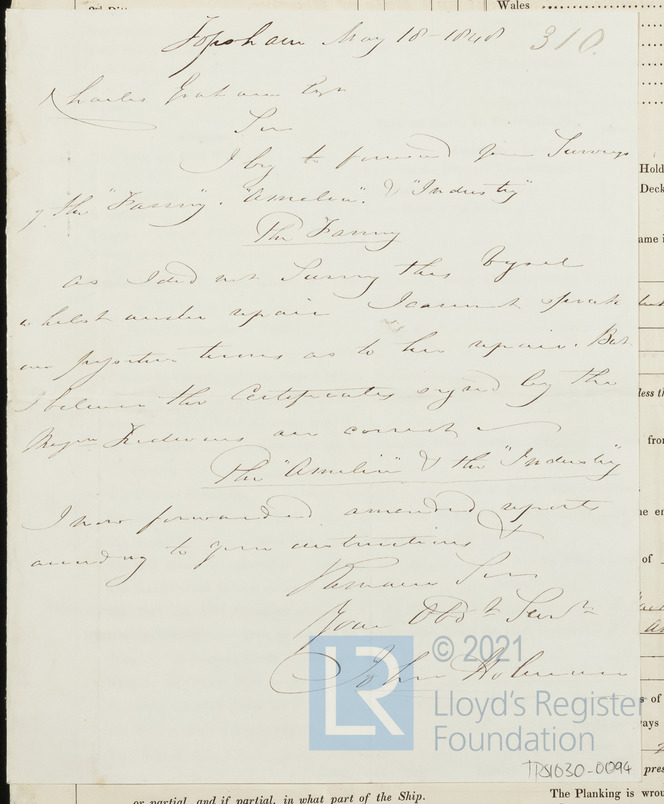 Wales
Topsham May 18 - 1848 310.
Charles Graham Esqr
Sir
I beg to forward you Surveys
of the "Fanny". "Amelia". & "Industry"
The Fanny
as I did not Survey this Vessel
whilst under repair I cannot speak
on positive terms as to her repair. But
I believe the Certificates signed by the
Messrs Redways are correct
The "Amelia" & the "Industry"
I now forwarded amended reports
according to your instructions &
Remain Sir
Your Obdt Servt
John Holman
© 2021
LR
Lloyd's Register
Foundation
TRS1030-0094
Hold
Deck
ame i
less th
from
he en
of
s of
ways
pres
or partial, and if partial, in what part of the Ship.
The Planking is wrou